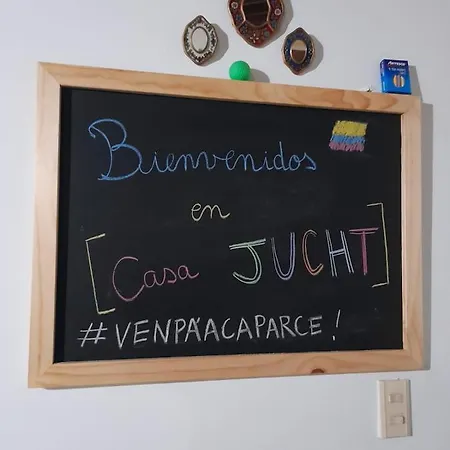 Bienvenidos
en
[Casa JUCHT]
#VENPÁACAPARCE!